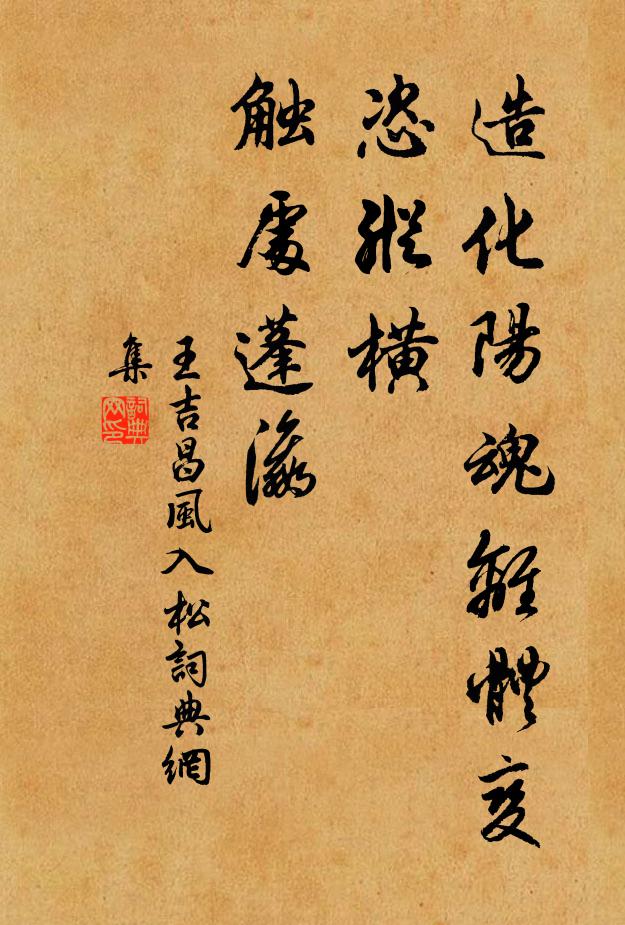 造化陽魂離體変
恣縱橫
触處蓬瀛
王吉昌風入松詞典網
集
詞典
网印